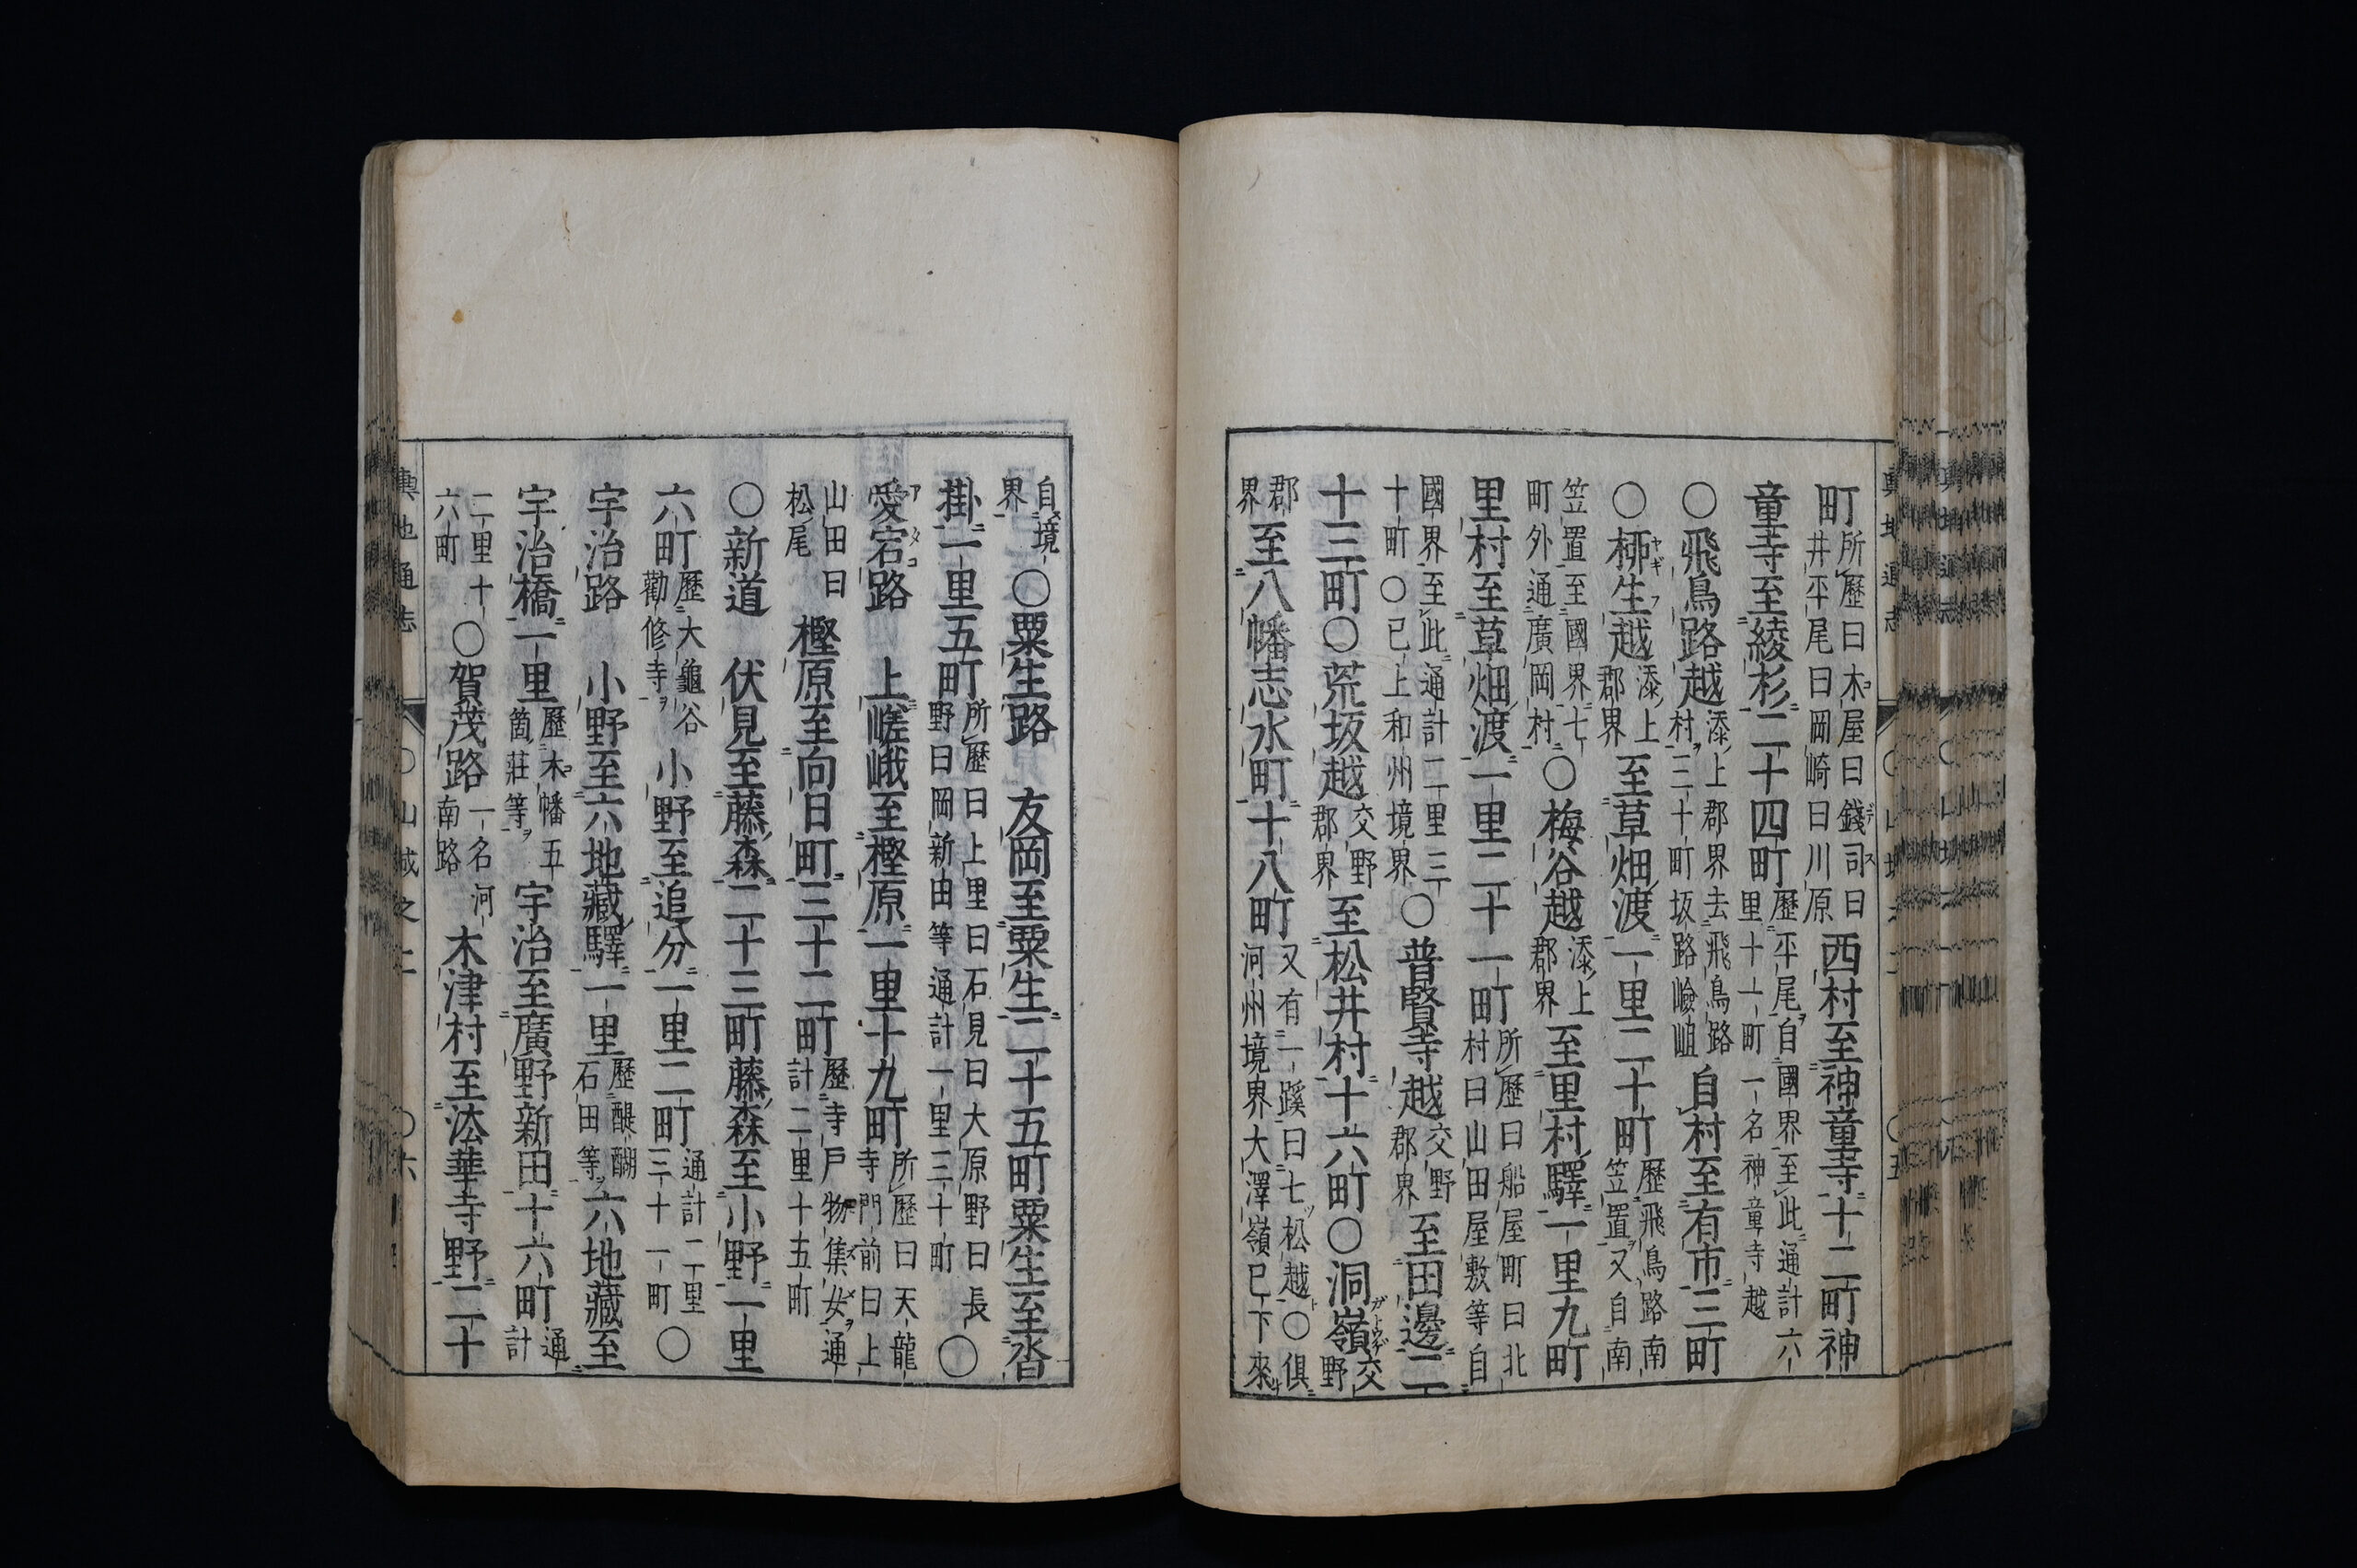 町所歴曰木屋曰錢司曰井平尾曰岡崎曰川原西村至神童寺十二町神
童寺至綾杉二十四町歴平尾自國界至此通計六里十一町一名神童寺越
○飛鳥路越添上郡界去飛鳥路村二十町坂路嶮岨自村至有市三町
○柳生越添上郡界至草畑渡一里二十町歴飛鳥路南笠置又自南
笠置至國界七町外通廣岡村○梅谷越添上郡界至里村驛一里九町
里村至草畑渡一里二十一町所歴曰船屋町曰北村曰山田屋敷等自
國界至此通計二里三十町○已上和州境界○普賢寺越交野郡界至田邊二
十三町○荒坂越交野郡界至松井村十六町○洞嶺交野
郡界至八幡志水町十八町又有一蹊曰七松越○俱河州境界大澤嶺已下來
自境界○粟生路 友岡至粟生二十五町粟生至沓
掛一里五町所歴曰上里曰石見曰大原野曰長野曰岡新由等通計一里三十町○
愛宕路 上嵯峨至樫原一里十九町所歴曰天龍寺門前曰上
山田曰松尾樫原至向日町三十二町歴寺戸物集女通計二里十五町
○新道 伏見至藤森二十三町藤森至小野一里
六町歴大龜谷勸修寺小野至追分一里二町通計二里三十一町○
宇治路 小野至六地藏驛一里歴醍醐石田等六地藏至
宇治橋一里歴木幡五箇莊等宇治至廣野新田十六町通計
二里十六町○賀茂路一名河南路木津村至法華寺野二十
輿地通志 ○山城之二 ○六